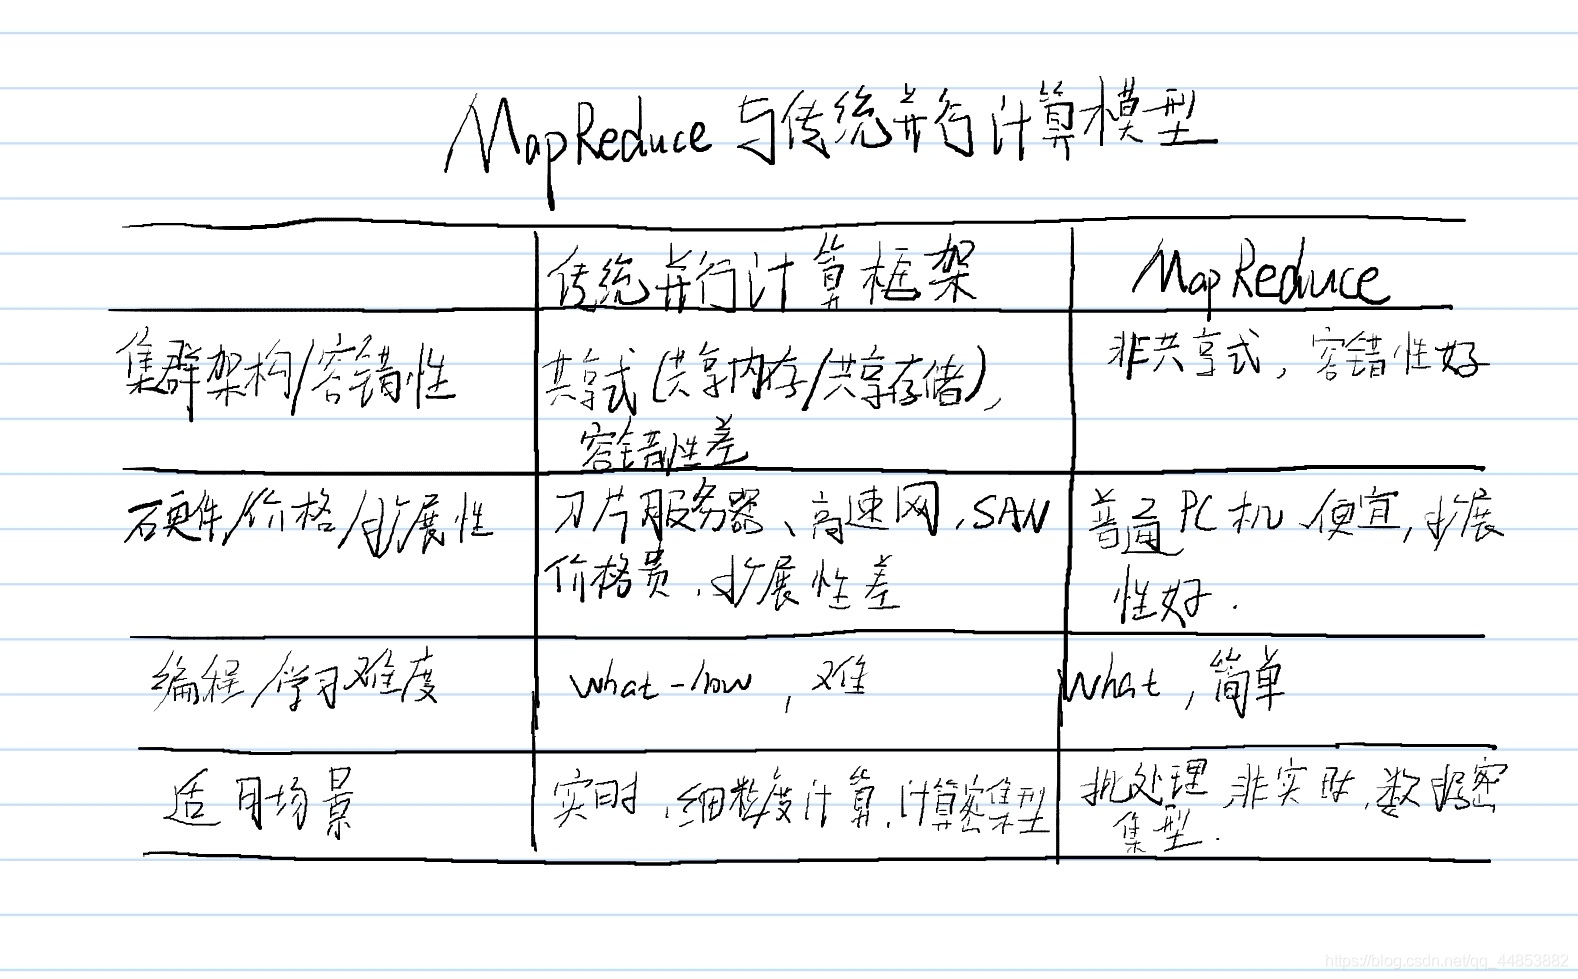 MapReduce 与传统并行计算模型
传统并行计算框架
MapReduce
集群架构/容错性
共享式(共享内存/共享存储),
容错性差
非共享式，容错性好
硬件/价格/扩展性
刀片服务器、高速网,SAN
价格贵,扩展性差
普通PC机、便宜,扩展
性好.
编程/学习难度
what-how,难
What,简单
适用场景
实时、细粒度计算、计算密集型
批处理、非实时、数据密
集型.
https://blog.csdn.net/qq_44853882